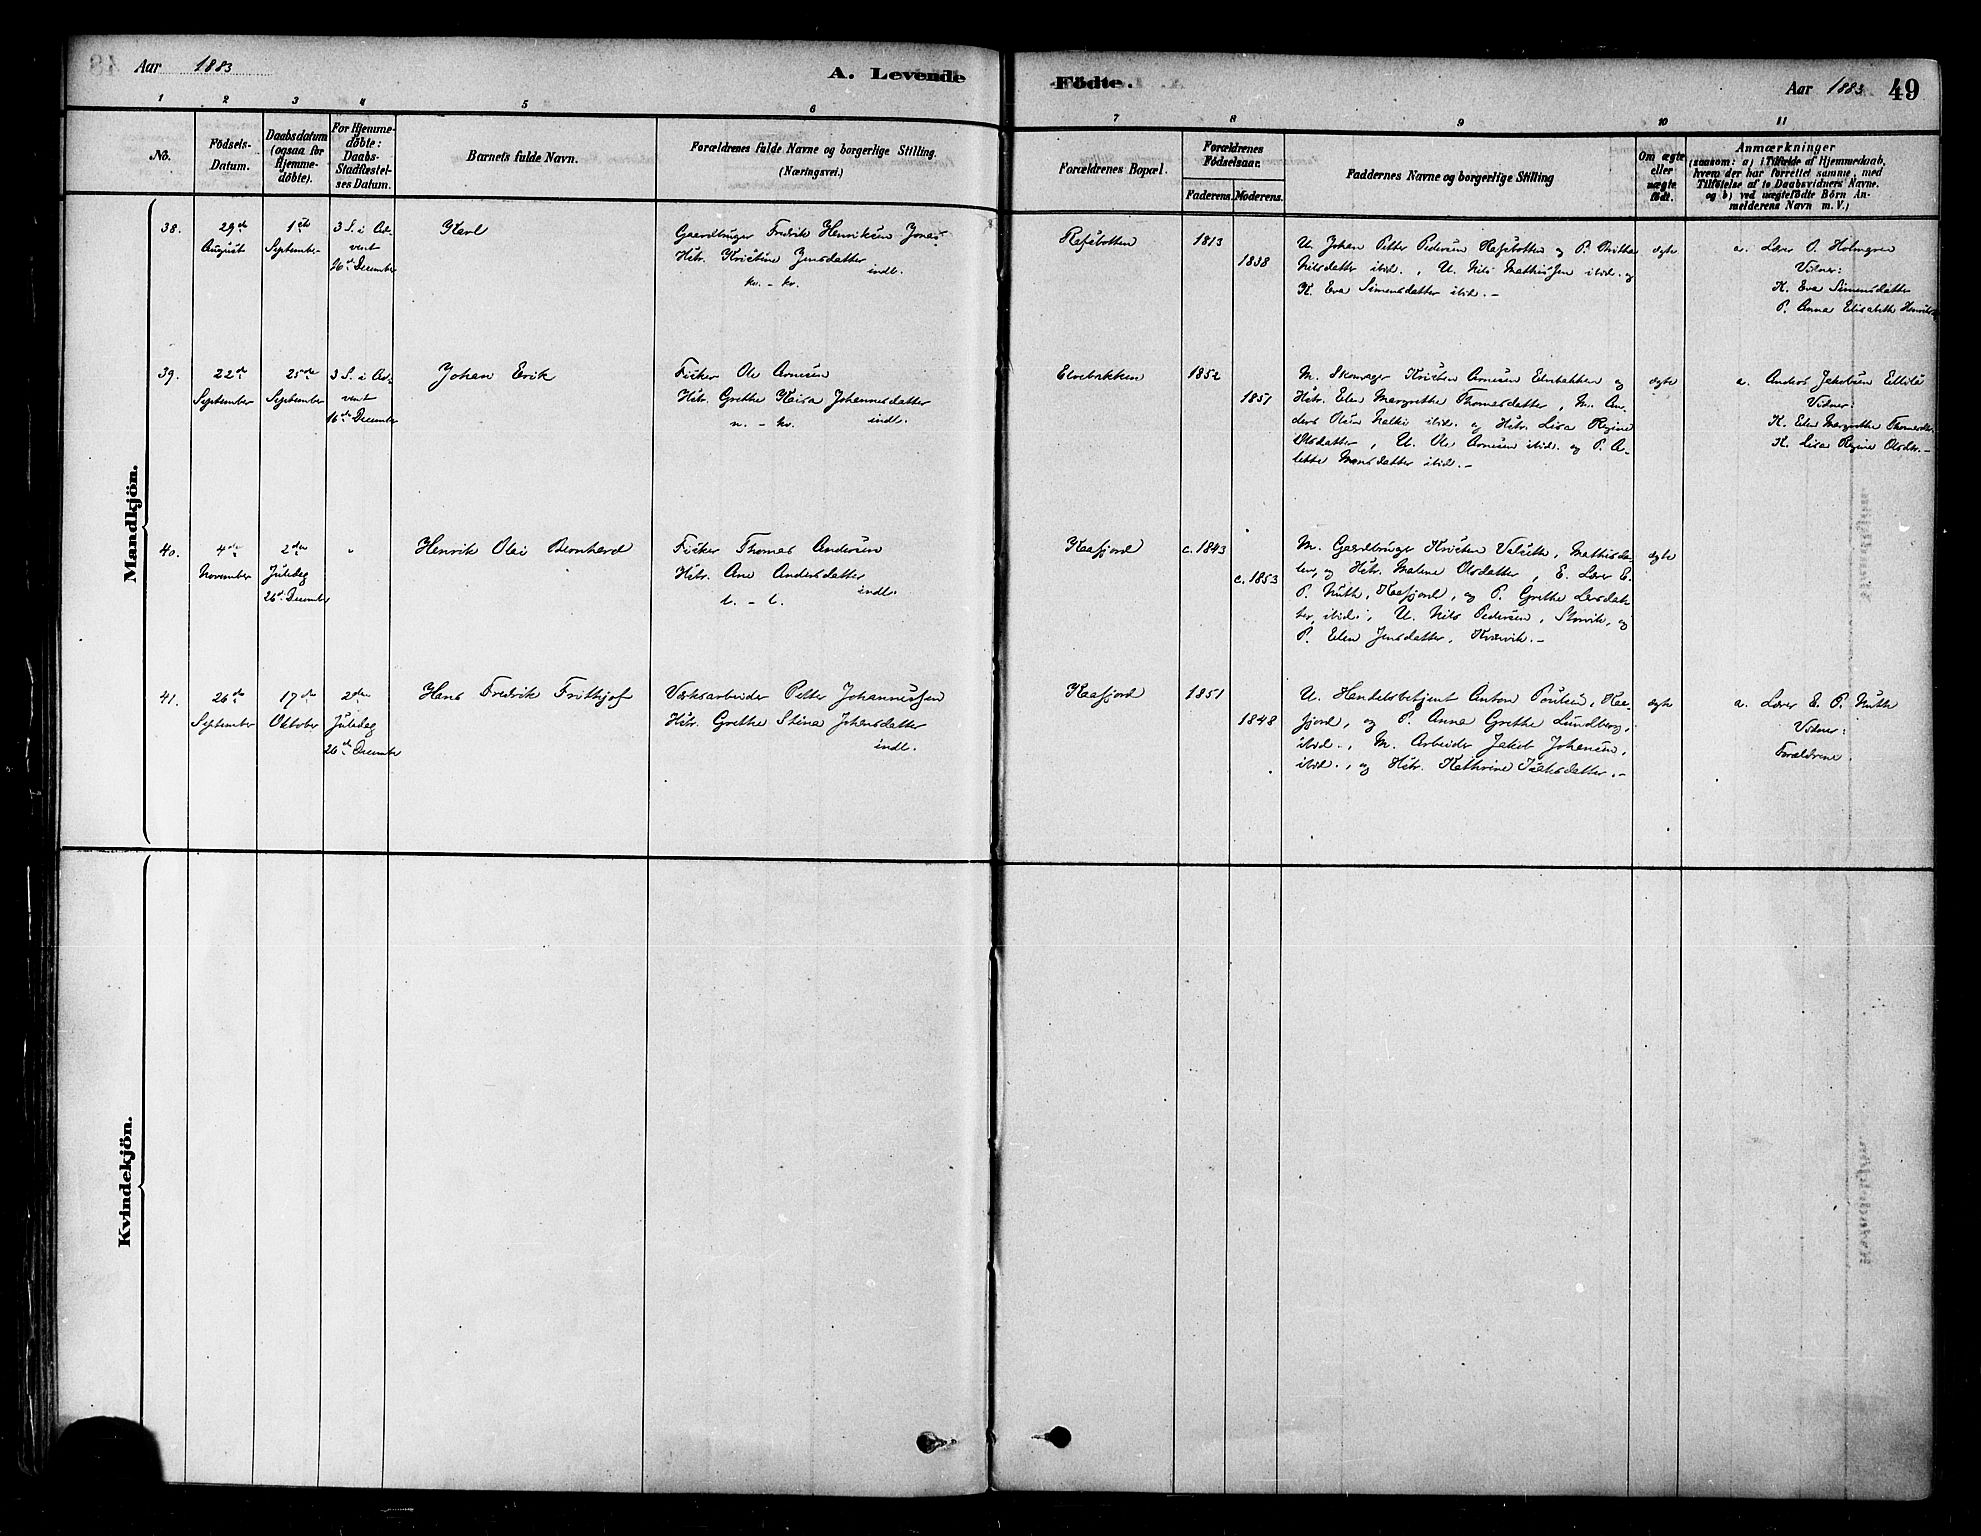 Aar 1883
A. Levende
Födte.
Aar 1883
49
1 2 3 4 5 6
7 8 9 10 11
No.
Födsels-
Datum.
Daabsdatum
(ogsaa for
Hjemme-
döbte).
For Hjemme-
döbte:
Daabs-
Stadfæstel-
ses Datum.
Barnets fulde Navn.
Forældrenes fulde Navne og borgerlige Stilling.
(Næringsvei.)
Forældrenes Bopæl.
Forældrenes
Födselsaar.
Faderens. Moderens.
Faddernes Navne og borgerlige Stilling
Om ægte
eller
uægte
födt.
Anmærkninger
(saasom: a) i Tilfælde af Hjemmedaab,
hvem der har forrettet samme, med
Tilföielse af to Daabsvidners Navne.
og b) ved uægtefödte Börn An-
melderens Navn m. V.)
Mandkjön.
38.
29de
August
1ste
September
3 S. i Ad-
vent
16de December
Karl
Gaardbruger Fredrik Henriksen Jonas
Hstr. Kristine Jensdatter
indl.
kv. - kv.
Rafsbotten
1813
1838
U. Johan Petter Pedersen Rafsbotten og P. Britha
Nilsdatter ibid., U. Nils Mathissen ibid. og
K. Eva Simensdatter ibid. -
ægte
a. Lærer O. Holmgren
Vidner:
K. Eva Simensdatter
P. Anna Elisabeth
39.
22de
September
25de
September
3 S. i Ad-
vent
16de December
Johan Erik
Fisker Ole Arnesen
Hstr. Grethe Kaisa Johannesdatter
indl.
n. - kv.
Elvebakken
1852
1851
M. Skomager Kristen Arnesen Elvebakken og
Hstr. Elen Margrethe Thomasdatter, M. An-
ders Olsen ibid. og Hstr. Lisa Regine
Olsdatter, U. Ole Arnesen ibid. og P. A-
lette Monsdatter ibid. -
ægte
a. Anders Jakobsen
Vidner:
K. Elen Margrethe Thomasdtr.
K. Lisa Regine Olsdtr. -
40.
4de
November
2den
Juledag
26de December
"
Henrik Olai Bernhard
Fisker Thomas Andersen
Hstr. Ane Andersdatter
indl.
l. - l.
Kaafjord
c. 1843
c. 1853
M. Gaardbruger Kristen Mathisda-
len, og Hstr. Malene Olsdatter, E. Lærer E.
P. Nuth, Kaafjord, og P. Grethe Larsdat-
ter, ibid., U. Nils Pedersen, Storvik, og
P. Elen Jensdatter, Kvænvik. -
ægte
41.
26de
September
17de
Oktober
2den
Juledag
26de December
Hans Fredrik Frithjof
Værksarbeider Petter Johannessen
Hstr. Grethe Stina Johansdatter
indl.
Kaafjord
1851
1848
U. Handelsbetjent Anton Poulsen, Kaa-
fjord, og P. Anna Grethe Lundberg,
ibid., M. Arbeider Jakob Johansen,
ibid., og Hstr. Kathrine Isaksdatter. -
ægte
a. Lærer E. P. Nuth
Vidner:
Forældrene.
Kvindekjön.